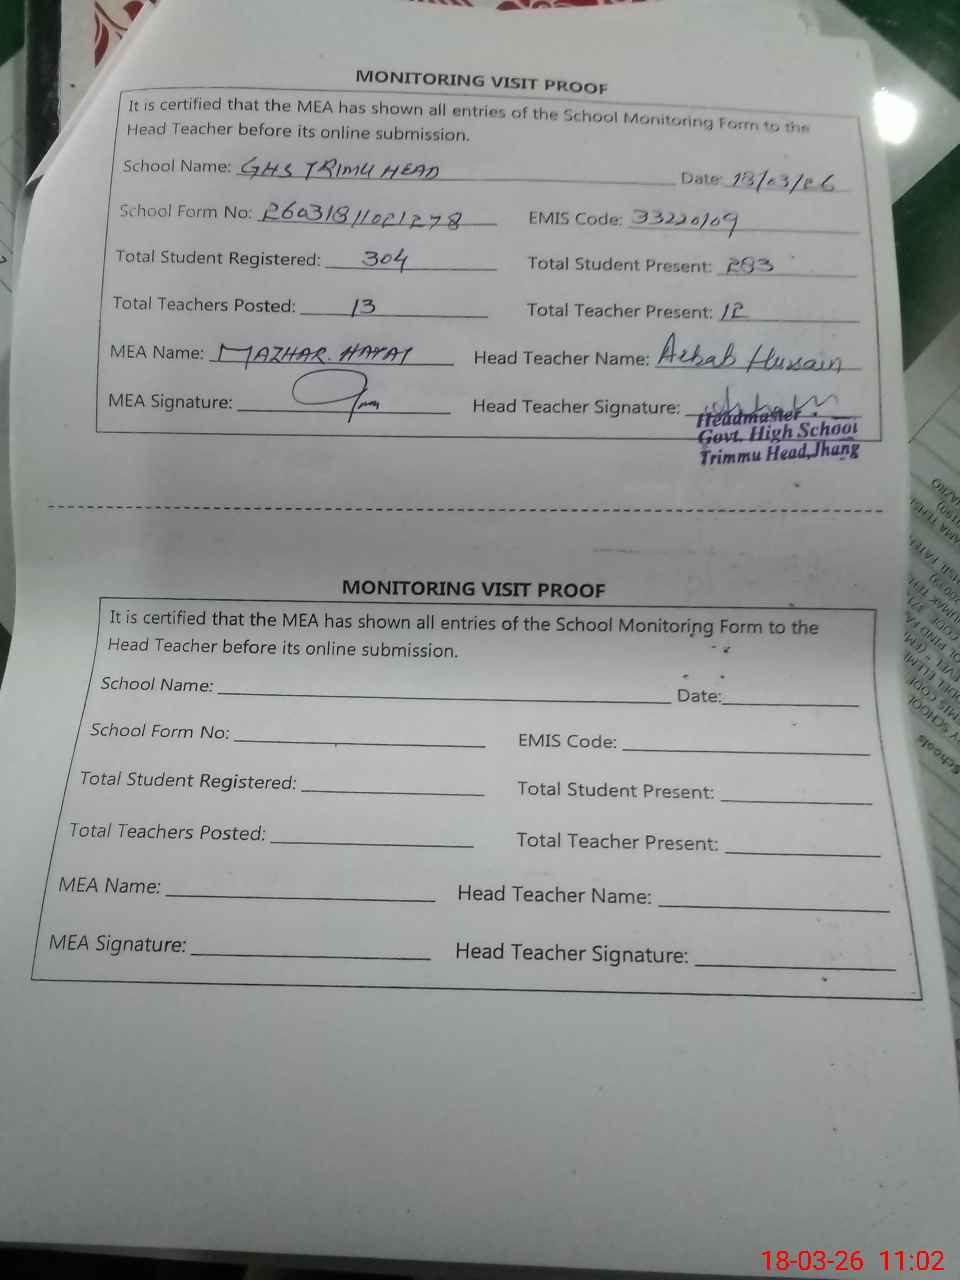 MONITORING VISIT PROOF
It is certified that the MEA has shown all entries of the School Monitoring Form to the
Head Teacher before its online submission.
School Name: GHS TRIMU HEAD Date: 18/03/26
School Form No: 26031811021278 EMIS Code: 33220109
Total Student Registered: 304 Total Student Present: 283
Total Teachers Posted: 13 Total Teacher Present: 12
MEA Name: MAZHAR. HAYAT Head Teacher Name: Arbab Hussain
MEA Signature: Head Teacher Signature:
Headmaster
Govt. High School
Trimmu Head, Jhang
MONITORING VISIT PROOF
It is certified that the MEA has shown all entries of the School Monitoring Form to the
Head Teacher before its online submission.
School Name: Date:
School Form No: EMIS Code:
Total Student Registered: Total Student Present:
Total Teachers Posted: Total Teacher Present:
MEA Name: Head Teacher Name:
MEA Signature: Head Teacher Signature:
18-03-26 11:02